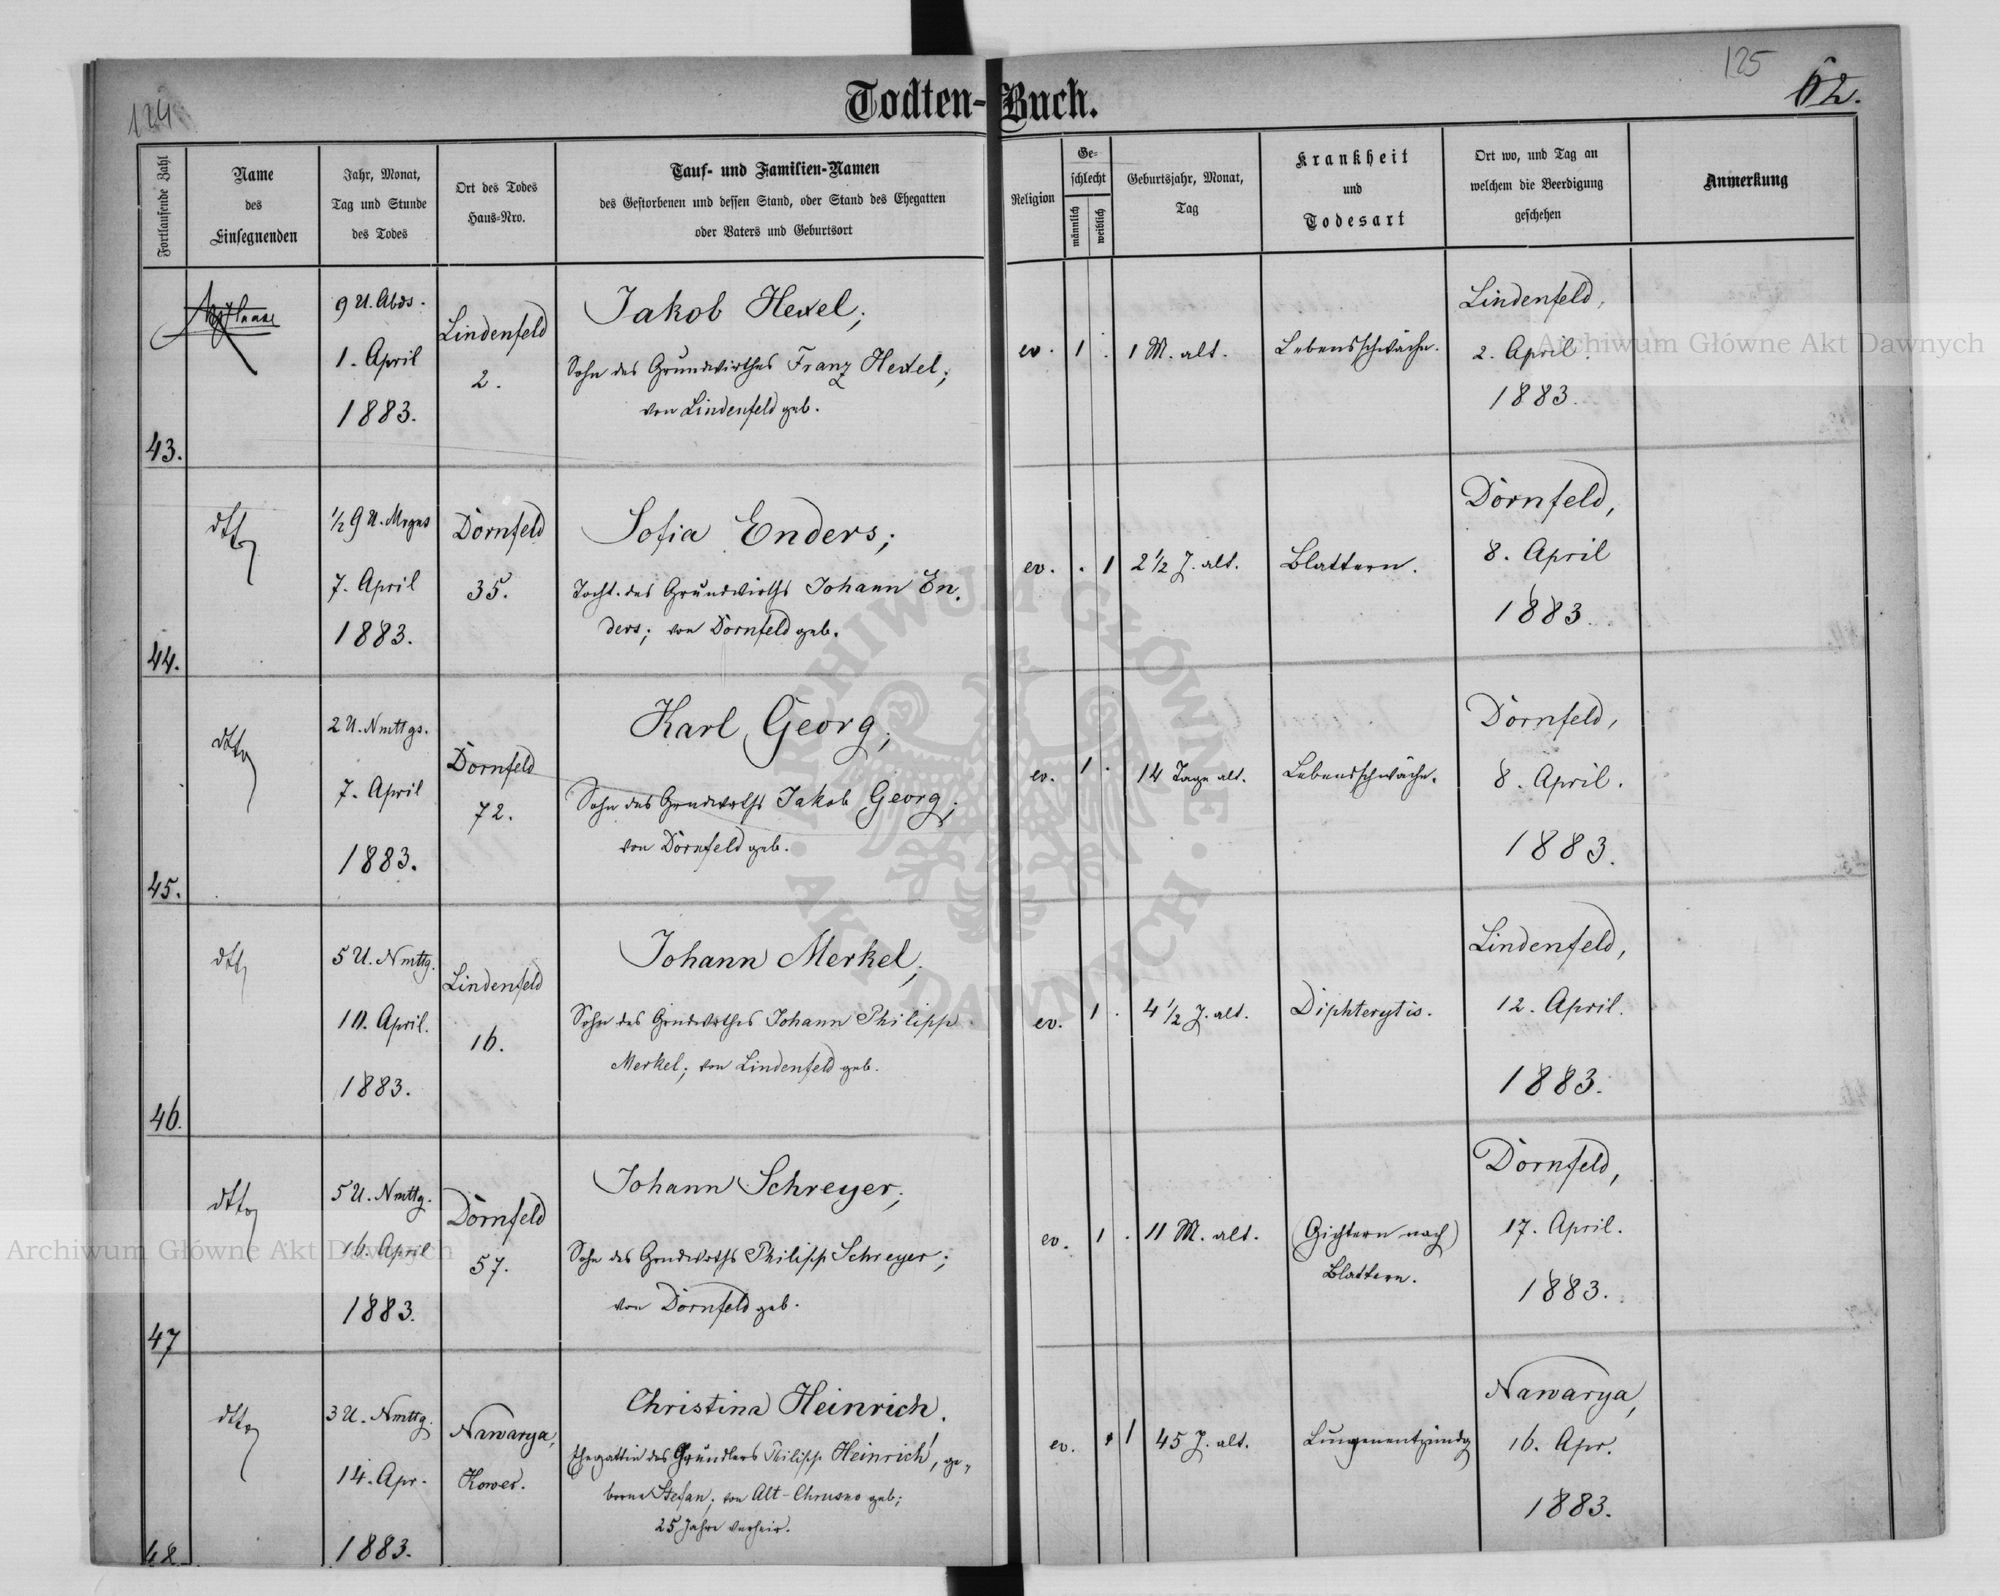 124
125
62.
Todten-Buch.
Fortlaufende Zahl
Name
des
Einsegnenden
Jahr, Monat,
Tag und Stunde
des Todes
Ort des Todes
Haus-Nro.
Tauf- und Familien-Namen
des Gestorbenen und dessen Stand, oder Stand des Ehegatten
oder Vaters und Geburtsort
Religion
Ge-
schlecht
männlich
weiblich
Geburtsjahr, Monat,
Tag
Krankheit
und
Todesart
Ort wo, und Tag an
welchem die Beerdigung
geschehen
Anmerkung
43.
9 U. Abds.
1. April
1883.
Lindenfeld
2.
Jakob Hexel;
Sohn des Grundwirthes Franz Hexel;
von Lindenfeld geb.
ev.
1
.
1 M. alt.
Lebensschwäche.
Lindenfeld,
2. April
1883.
44.
dtto
1/2 9 U. Mrgns
7. April
1883.
Dornfeld
35.
Sofia Enders;
Tocht. des Grundwirths Johann En-
ders; von Dornfeld geb.
ev.
.
1
2 1/2 J. alt.
Blattern.
Dornfeld,
8. April
1883.
45.
dtto
2 U. Nmttgs.
7. April
1883.
Dornfeld
72.
Karl Georg;
Sohn des Grndwrths Jakob Georg;
von Dornfeld geb.
ev.
1
.
14 Tage alt.
Lebensschwäche.
Dornfeld,
8. April.
1883.
46.
dtto
5 U. Nmttg.
10. April.
1883.
Lindenfeld
16.
Johann Merkel;
Sohn des Grndwrthes Johann Philipp
Merkel; von Lindenfeld geb.
ev.
1
.
4 1/2 J. alt.
Diphterytis.
Lindenfeld,
12. April.
1883.
47
dtto
5 U. Nmttg.
16. April
1883.
Dornfeld
57.
Johann Schreyer;
Sohn des Grndwrths Philipp Schreyer;
von Dornfeld geb.
ev.
1
.
11 M. alt.
(Gichtern nach)
Blattern.
Dornfeld,
17. April.
1883.
48.
dtto
3 U. Nmttg.
14. Apr.
1883.
Nawarya,
Kower.
Christina Heinrich,
Ehegattin des Gründlers Philipp Heinrich, ge-
borne Stefan; von Alt-Chrusno geb;
25 Jahre verheir.
ev.
.
1
45 J. alt.
Lungenentzündg
Nawarya,
16. Apr.
1883.
Archiwum Główne Akt Dawnych
Archiwum Główne Akt Dawnych
ARCHIWUM GŁÓWNE
AKT DAWNYCH